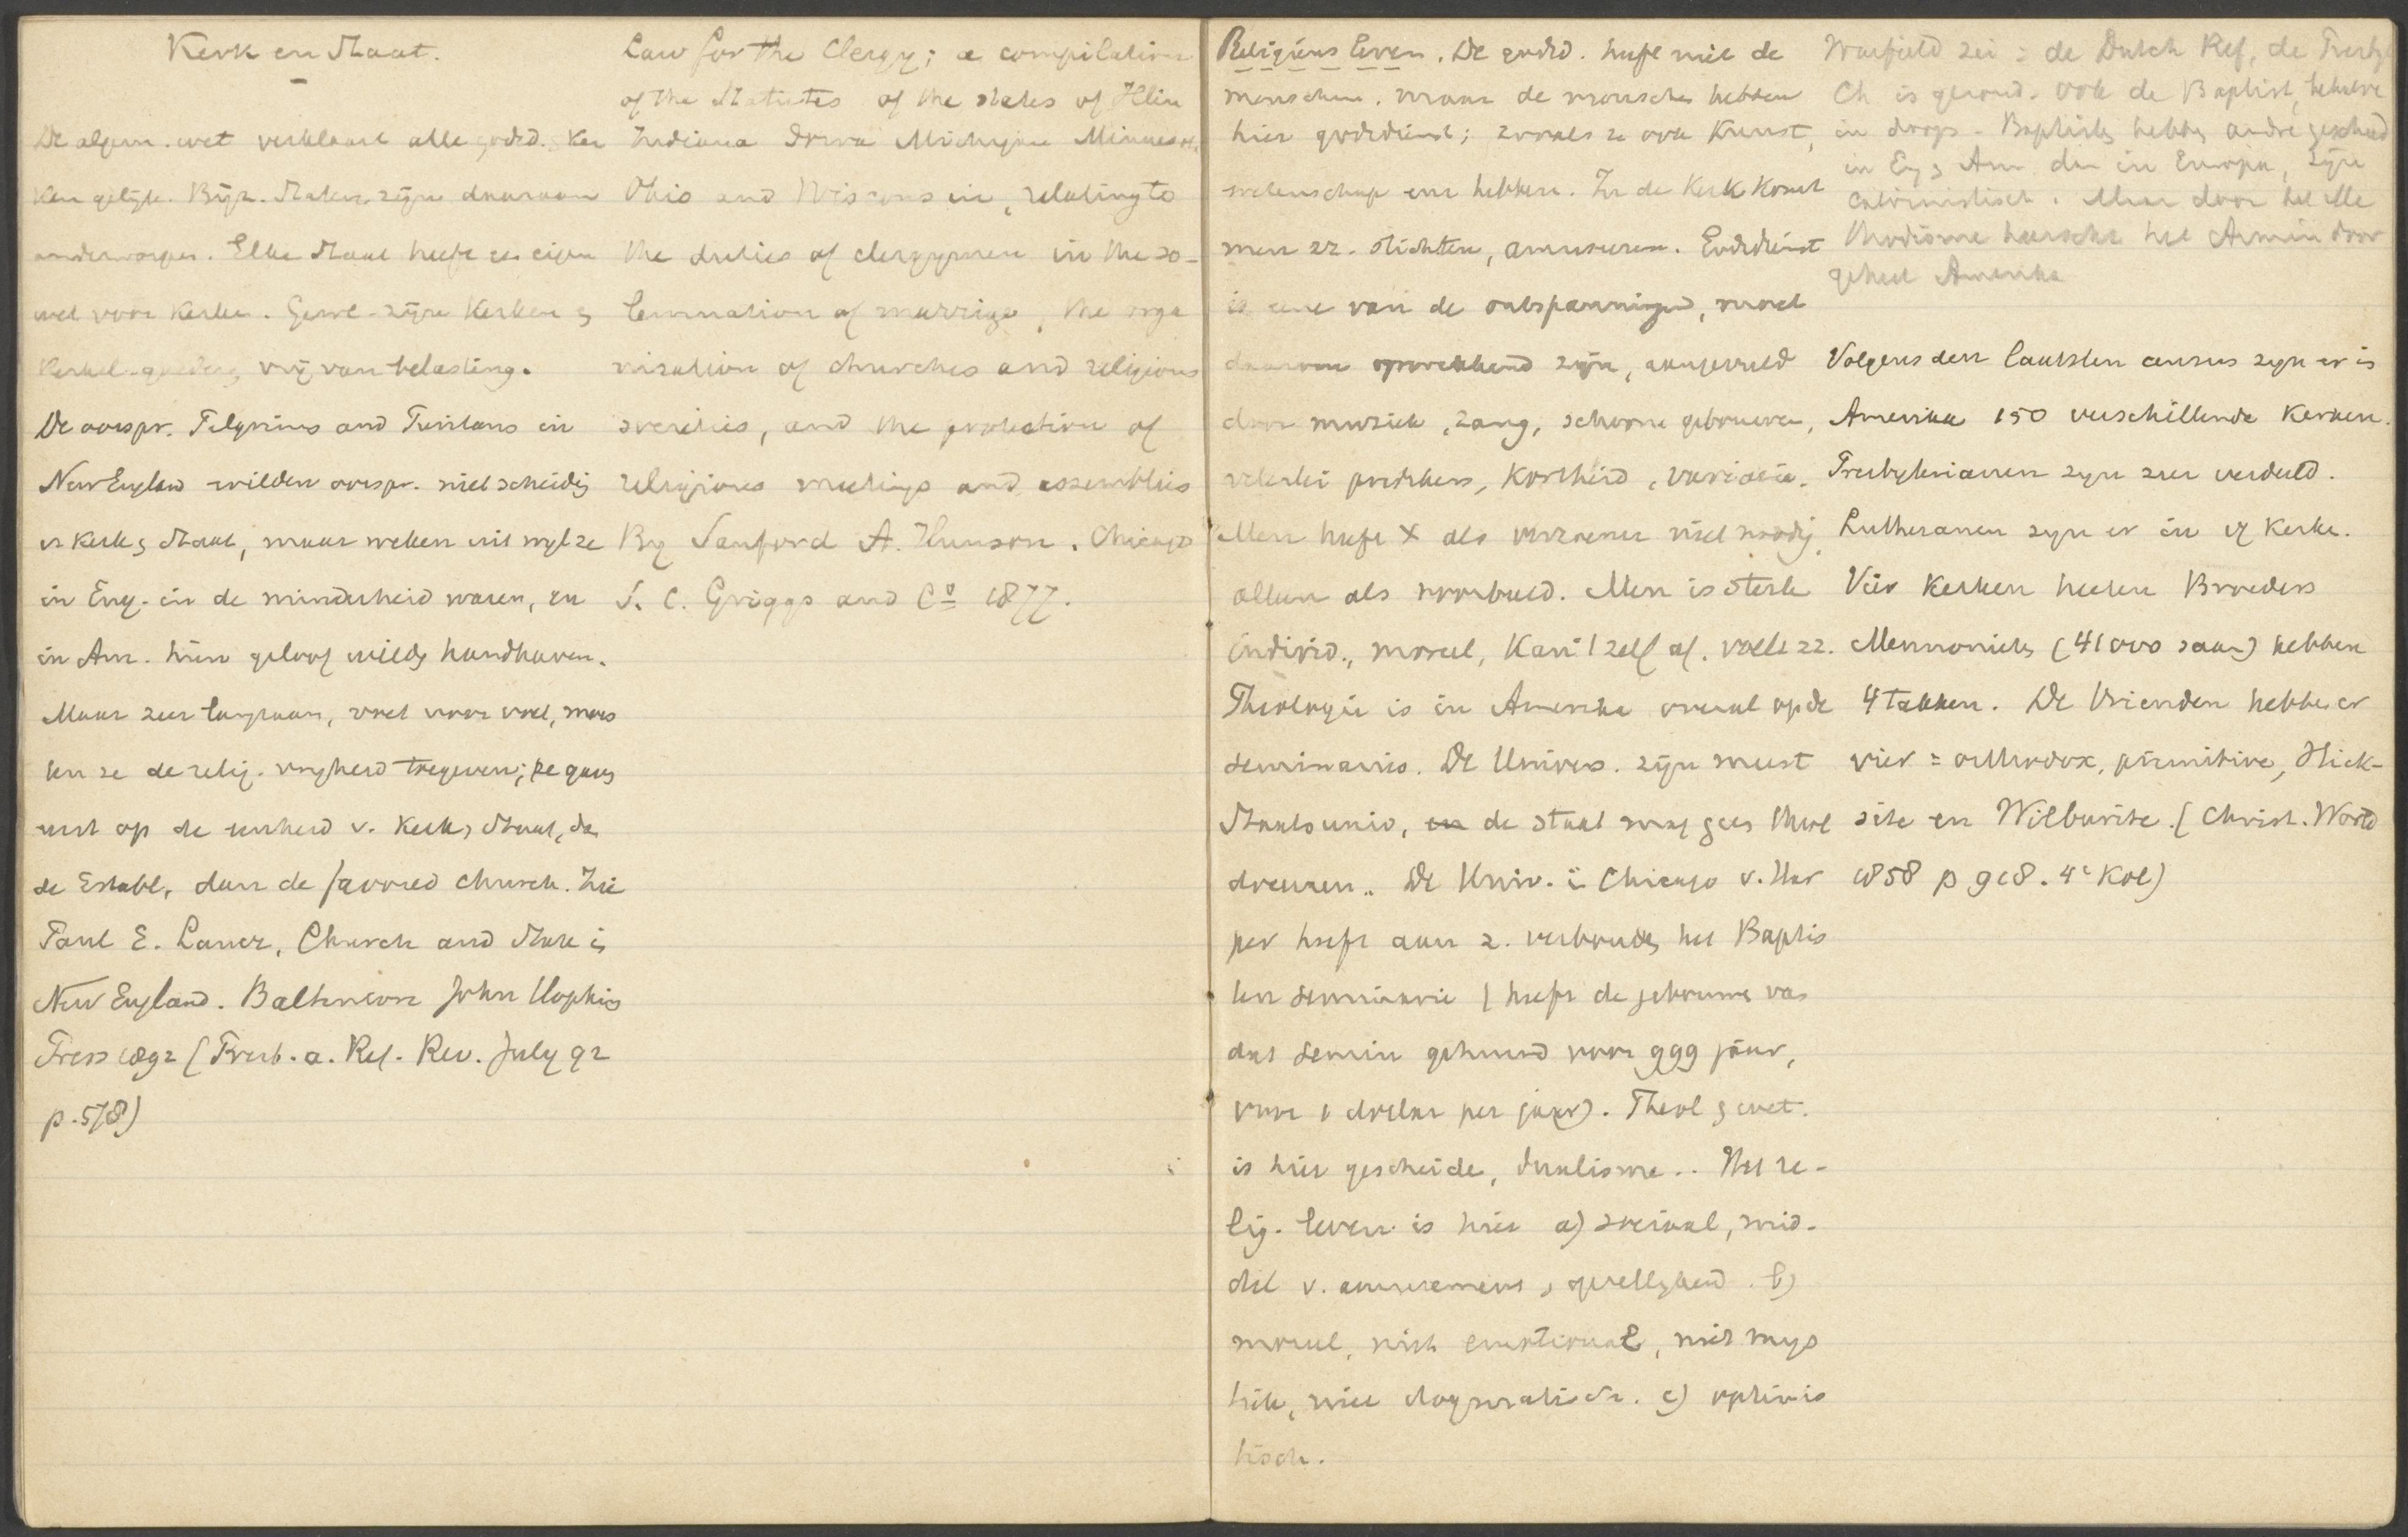 Kerk en Staat.
De algem. wet verklaart alle godsd. Ker
ken gelijk. Bijz. Staten zijn daaraan
onderworpen. Elke Staat heeft een eigen
wet voor kerken. Gewl. zijn kerken en
kerkel. goederen vrij van belasting.
De oorspr. Pilgrims and Puritans in
New England wilden oorspr. niet scheiding
v kerk en Staat, maar weken uit wyl ze
in Eng. in de minderheid waren, en
in Am. hun geloof wilden handhaven.
Maar zeer langzaam, voet voor voet, moes
ten ze de relig. vryheid toegeven; ze gaven
eerst op de eenheid v. kerk en Staat, dan
de Establ., dan de favored church. Zie
Paul E. Lauer, Church and State in
New England. Baltimore John Hopkins
Press 1892 (Presb. a. Ref. Rev. July 92
p. 578)
Law for the Clergy; a compilation
of the Statutes of the states of Illin
Indiana Iowa Michigan Minnesota
Ohio and Wisconsin, relating to
the duties of clergymen in the so-
lemnation of marriage, the orga
nisation of churches and religious
societies, and the protection of
religious meetings and assemblies
By Sanford A. Hunson. Chicago
S. C. Griggs and Co 1877.
Religieus leven. De godsd. heeft niet de
menschen. maar de menschen hebben
hier godsdienst; zooals ze ook Kunst,
wetenschap enz hebben. In de Kerk komt
men zz. stichten, amuseren. Godsdienst
is eene van de ontspanningen, moet
daarom opwekkend zijn, aangevuld
door muziek, zang, schoone gebouwen,
velerlei predikers, kortheid, variatie.
Men heeft X als verzoener niet noodig,
alleen als voorbeeld. Men is sterk
individ., moreel, kan 't zelf af.
Theologie is in Amerika overal op de
seminaries. De Univers. zijn meest
Staatsuniv, de staat mag geen theol
doceeren. De Univ. in Chicago v. Har
per heeft aan z. verbonden het Baptis
ten seminarie (heeft de gebouwen van
dat semin gehuurd voor 999 jaar,
voor 1 dollar per jaar). Theol en wet.
is hier gescheiden, dualisme.. Het re-
lig. leven is hier a) sociaal, mid-
del v. amusement, gezelligheid. b)
moreel, niet emotional, niet mys
tiek, niet dogmatisch. c) optimis
tisch.
Warfield zei: de Dutch Ref, de Presbyt
Ch is gezond. Ook de Baptist, behalve
in doops. Baptisten hebben andre geschied
in Eng en Am dan in Europa, zijn
calvinistisch. Maar door het Me
thodisme heerscht het Armin door
geheel Amerika
Volgens den laatsten census zyn er in
Amerika 150 verschillende Kerken.
Presbyterianen zyn zeer verdeeld.
Lutheranen zyn er in kerken.
Vier Kerken heeten Broeders
Mennonieten (41000 saam) hebben
4 takken. De Vrienden hebben er
vier = orthodox, primitive, Hick-
site en Wilburite. (Christ. World
1858 p 918. 4e Kol)